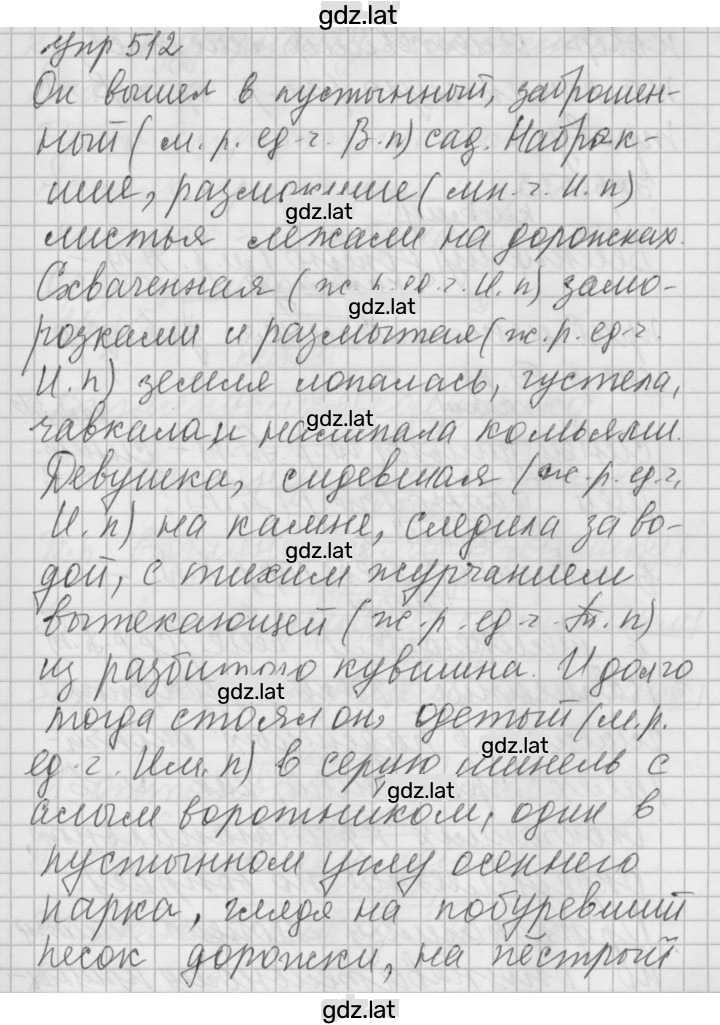 gdz.lat
упр 512
Он вышел в пустынный, заброшен-
ный (м.р. ед.ч. В.п) сад. Набряк-
шие, размокшие (мн.ч. И.п)
gdz.lat
листья лежали на дорожках.
Схваченная (ж.р. ед.ч. И.п) замо-
gdz.lat
розками и размытая (ж.р. ед.ч.
И.п) земля лопалась, густела,
gdz.lat
чавкала, и налипала комьями.
Девушка, сидевшая (ж.р. ед.ч,
И.п) на камне, следила за во-
gdz.lat
дой, с тихим журчанием
вытекающей (ж.р. ед.ч. Т.п)
из разбитого кувшина. И долго
gdz.lat
тогда стоял он, одетый (м.р.
gdz.lat
ед.ч. Им.п) в серую шинель с
gdz.lat
алым воротником, один в
пустынном углу осеннего
парка, глядя на побуревший
песок дорожки, на пёстрый
gdz.lat